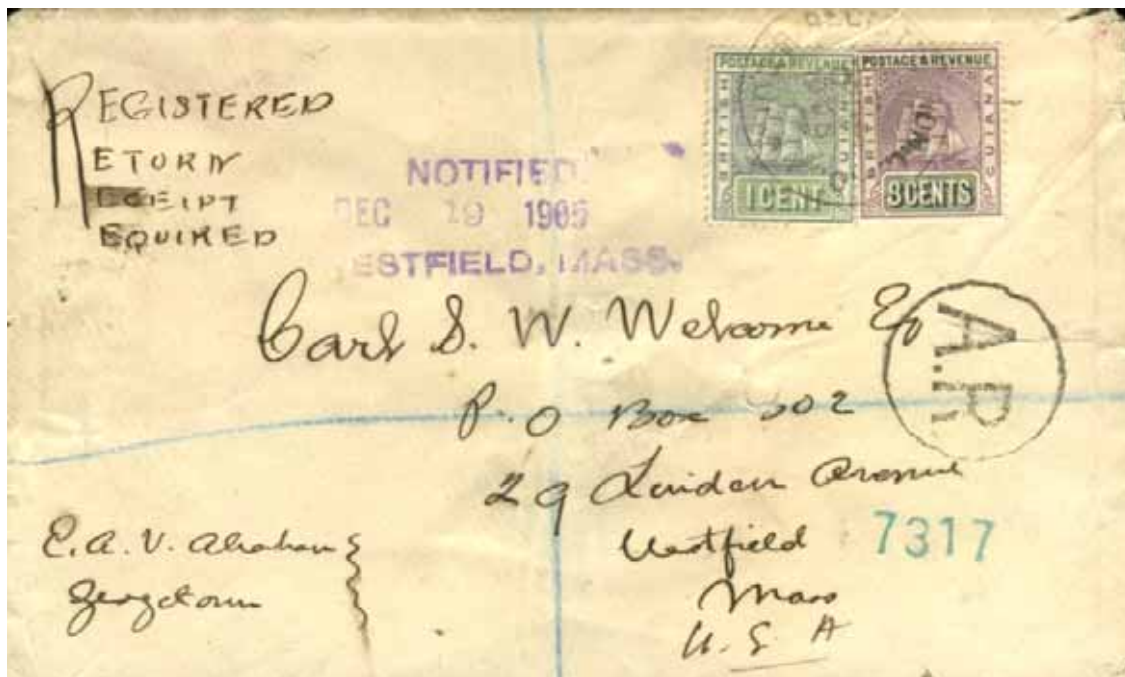 REGISTERED
RETURN
RECEIPT
REQUIRED
NOTIFIED
DEC 19 1905
ESTFIELD, MASS.
POSTAGE & REVENUE
BRITISH
GUIANA
1 CENT
POSTAGE & REVENUE
BRITISH
GUIANA
8 CENTS
A.R.
Carl S. W. Welcome
P.O Box 302
29 Linden Avenue
Westfield
Mass
U.S A
7317
E. A. V. Abraham
Georgetown